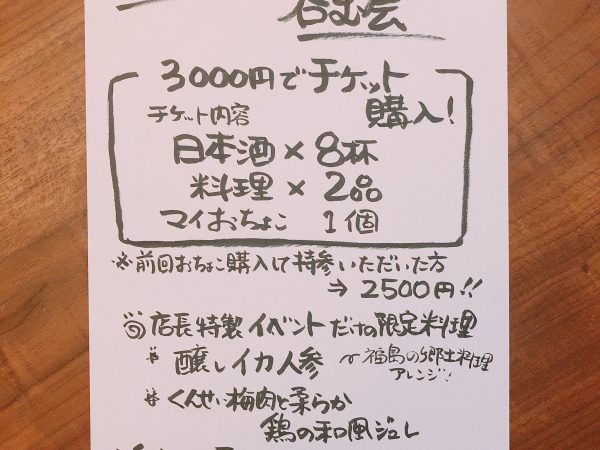 呑む会
3000円でチケット
チケット内容 購入!
日本酒×8杯
料理×2品
マイおちょこ 1個
※前回おちょこ購入して持参いただいた方
→ 2500円!!
店長特製イベントだけの限定料理
* 醸しイカ人参 〜福島の郷土料理
アレンジ!
* くんせい梅肉と柔らか
鶏の和風ジュレ